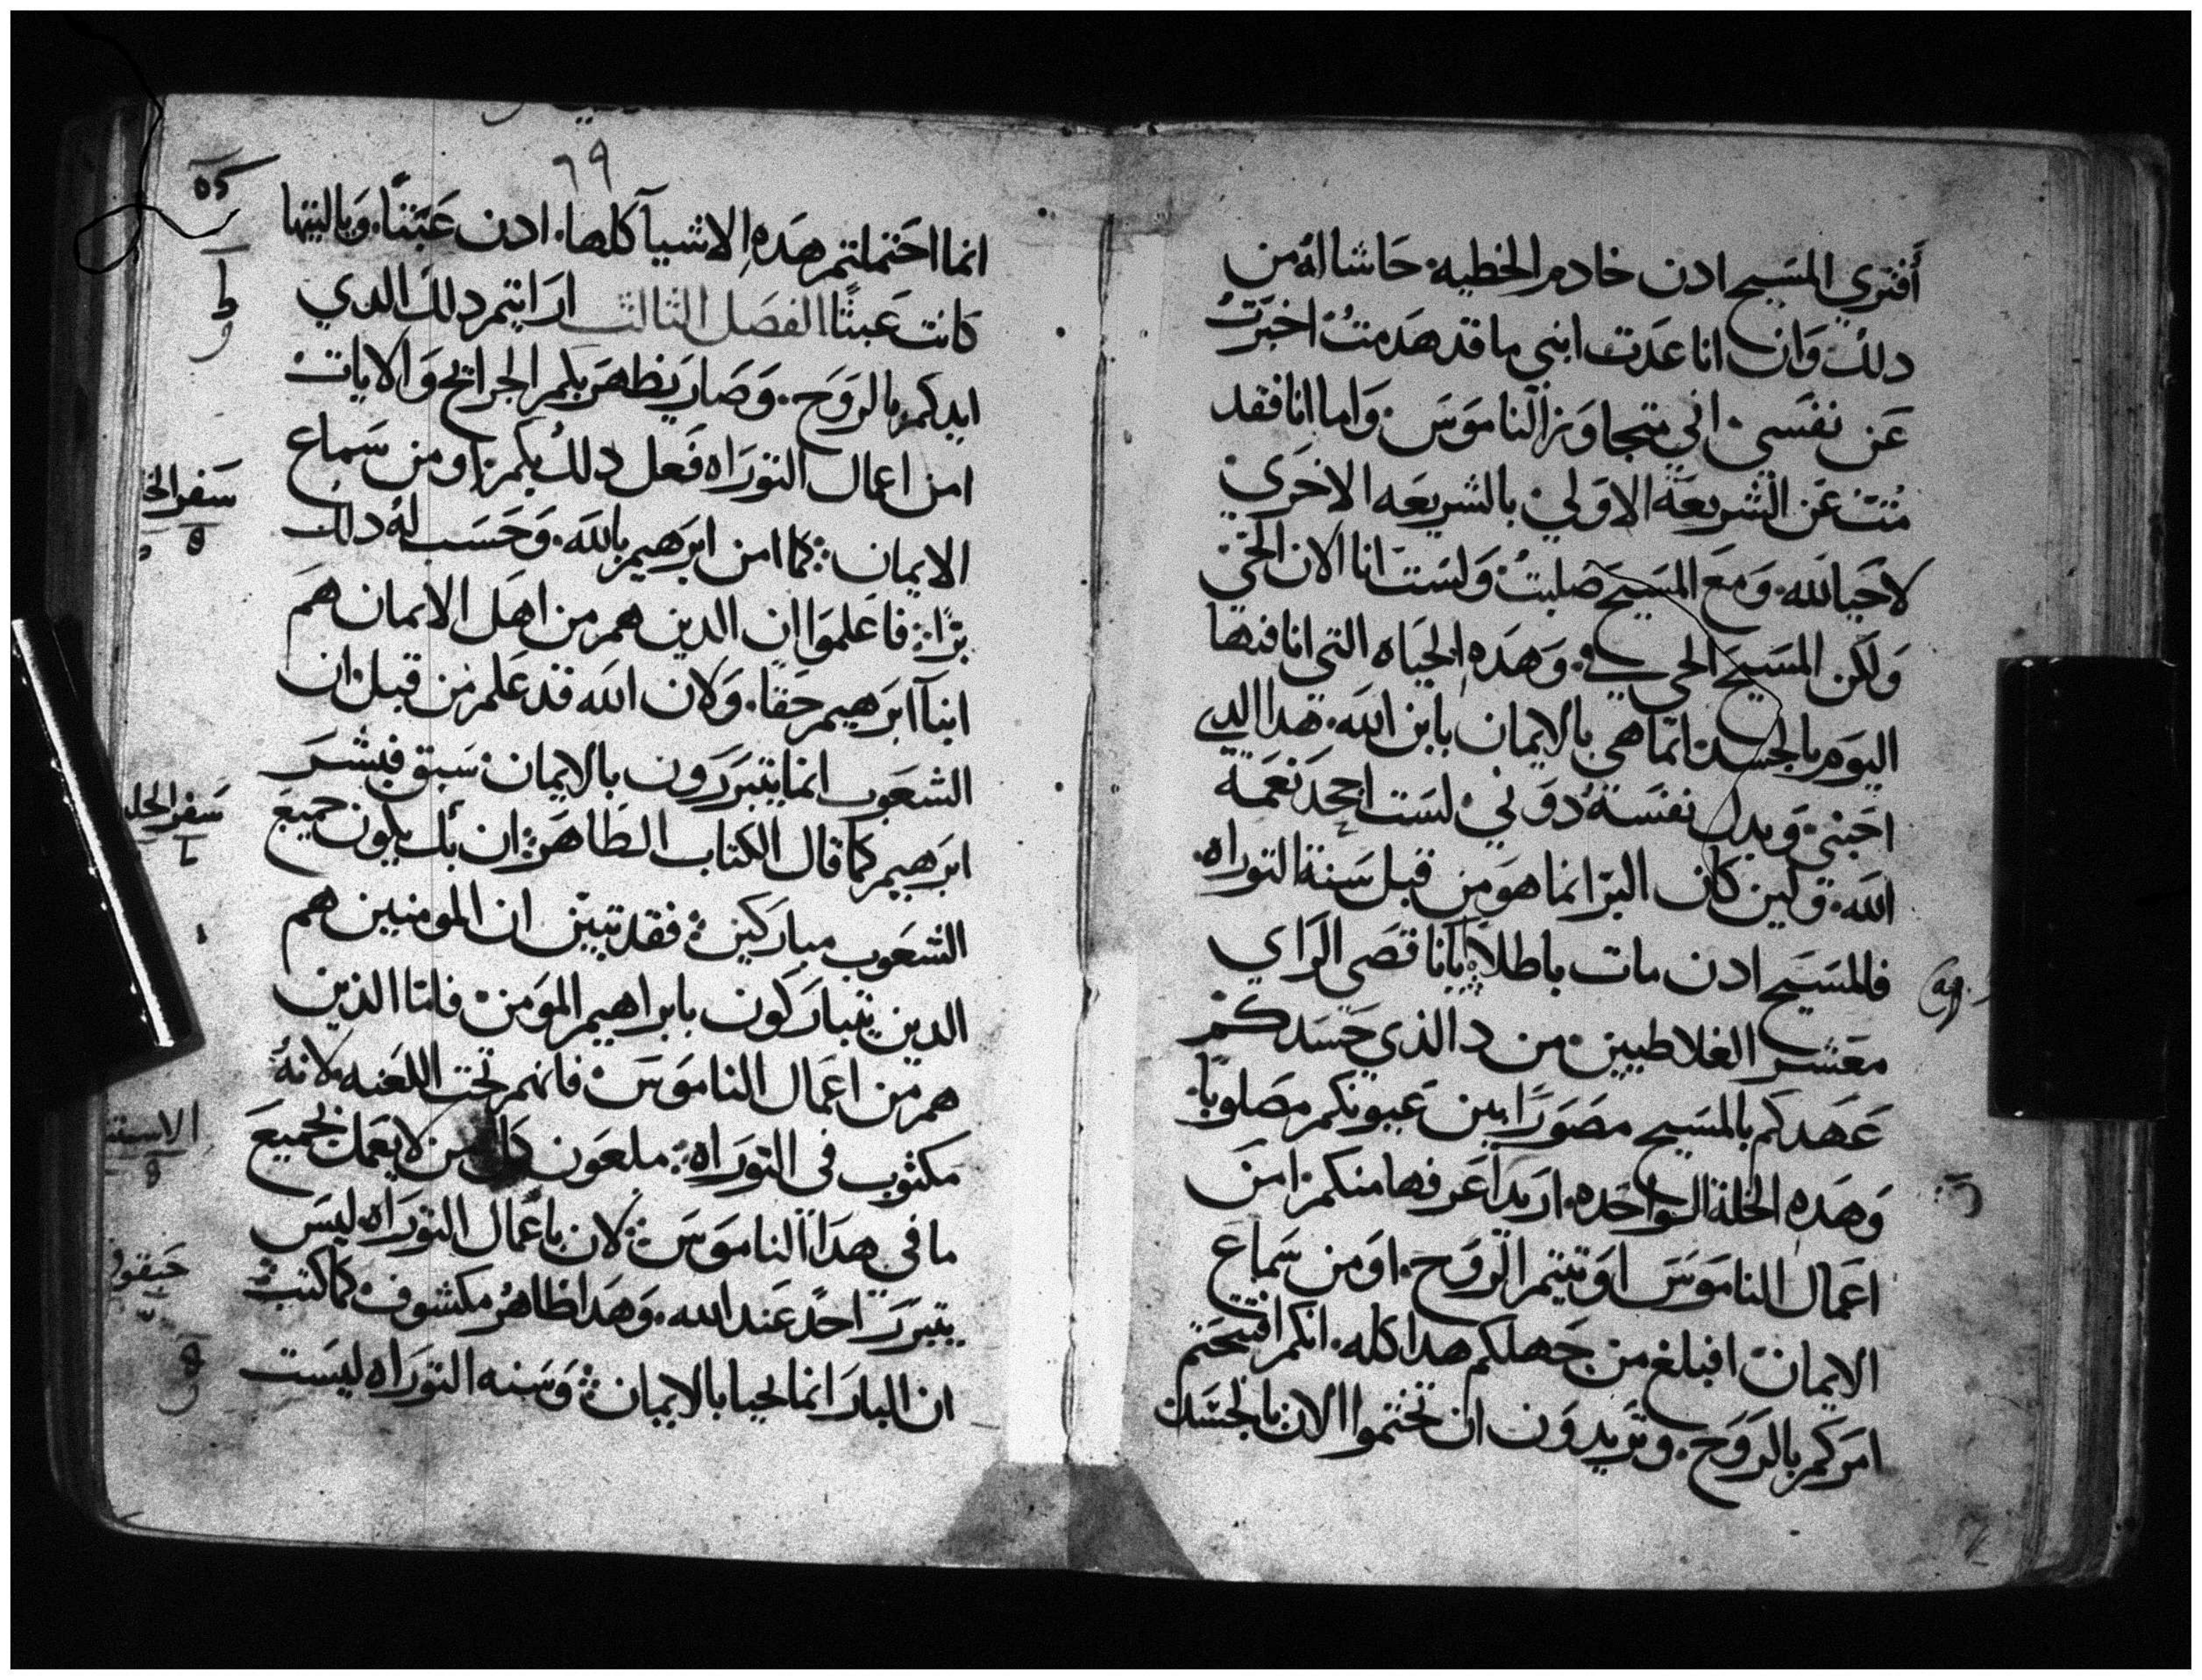 أفترى المسيح ادن خادم الخطيه. حَاشا لهُ من
دلكَ وَان انا عدَت ابني ما قد هدَمتُ اخبَرتُ
عَن نفسَي اني متجاوَز الناموَسَ وَاما انا فقد
مُتتُ عَن الشريعَة الاوَلي بالشريعَه الاخرَي
لاحَيا لله. وَمعَ المسَيح صَلبتُ وَلسَت انا الان الحَي
وَلكن المسَيحَ الحي في. وَهدَه الحيَاه التي انا فيها
اليوَم بالجسَد انما هي بالايمان بابن الله. هدا الدي
احَبني وَبدل نفسَهُ دوَني لسَت اجحَد نعَمة
الله. وَلين كان البرّ انما هوَ من قبل سَنة التوراه
فالمسَيح ادن مات باطلاً يا ناقصَي الرَاي
معَشر الغلاطيين من دا الذي حَسَدكم
عَهدَكم بالمسَيح مصَوَرًا بين عَيونكم مصَلوبًا
وَهدَه الخلة الواحَده اريدَ اعَرفها منكم امن
اعَمال الناموَسَ اوَتيتم الرَوَح. اوَ من سَماعَ
الايمان افبلغ من جَهلكم هدا كله. انكم افتتحَتم
امرَكم بالرَوَحَ. وَتريدوَن ان تختموا الان بالجسَد
٦٩
انما احَتملتم هَدَه الاشيآ كلها. ادن عَبَثًا. وَياليتها
كانت عَبثًا الفصَل الثالث ارَايتم دلك الدي
ايدكم بالرَوَح. وَصَارَ يَظهرَ بكم الجرايح وَالايات
امن اعمال التورَاه فعَل دلكَ بكم اوَ من سَماع
الايمان كما امن ابرَهيم بالله. وَحَسَب لهُ دلك
برًا فاعَلموَا ان الدين هم من اهل الايمان همَ
ابنآ ابرَهيم حَقا. وَلان الله قد عَلم من قبل ان
الشعَوَب انما يتبرَرَوَن بالايمان سَبق فبشرَ
ابرَهيم كما قال الكتاب الطَاهرَ ان بك يكون جميعَ
الشعَوَب مباركين فقد تبيّن ان المومنين هم
الدين يتبارَكون بابراهيم الموَمن فاما الذين
هم من اعمَال الناموَسَ فانهم تحَت اللعَنه لانهُ
مكتوَب في التورَاه ملعَون كل من لايعَمل بجميعَ
ما في هدَا الناموَسَ لان باعَمال التورَاه ليسَ
يتبرَرَ احدٌ عَند الله. وَهدَا ظاهرُ مكشوف كما كتب
ان البارَ انما يحيا بالايمان وَسَنه التورَاه ليسَت
سَفر الخ
ه
سَفر الخل
الاستث
حَبقوق